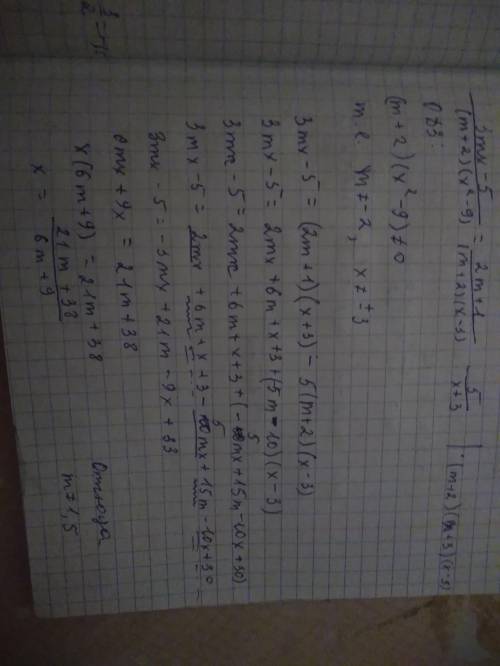 3mx - 5 / (m+2)(x²-9) = 2m+1 / (m+2)(x-3) 5 / x+3 | · (m+2)(x+3)(x-3)
ОДЗ:
(m+2)(x²-9) ≠ 0
т.е. m ≠ -2, x ≠ ±3
3mx - 5 = (2m+1)(x+3) - 5(m+2)(x-3)
3mx - 5 = 2mx + 6m + x + 3 + (-5m-10)(x-3)
3mx - 5 = 2mx + 6m + x + 3 + (-5mx + 15m - 10x + 30)
3mx - 5 = 2mx + 6m + x + 3 - 5mx + 15m - 10x + 30
3mx - 5 = -3mx + 21m - 9x + 33
6mx + 9x = 21m + 38
x(6m+9) = 21m + 38
x = 21m + 38 / 6m + 9
Отсюда
m ≠ 1,5